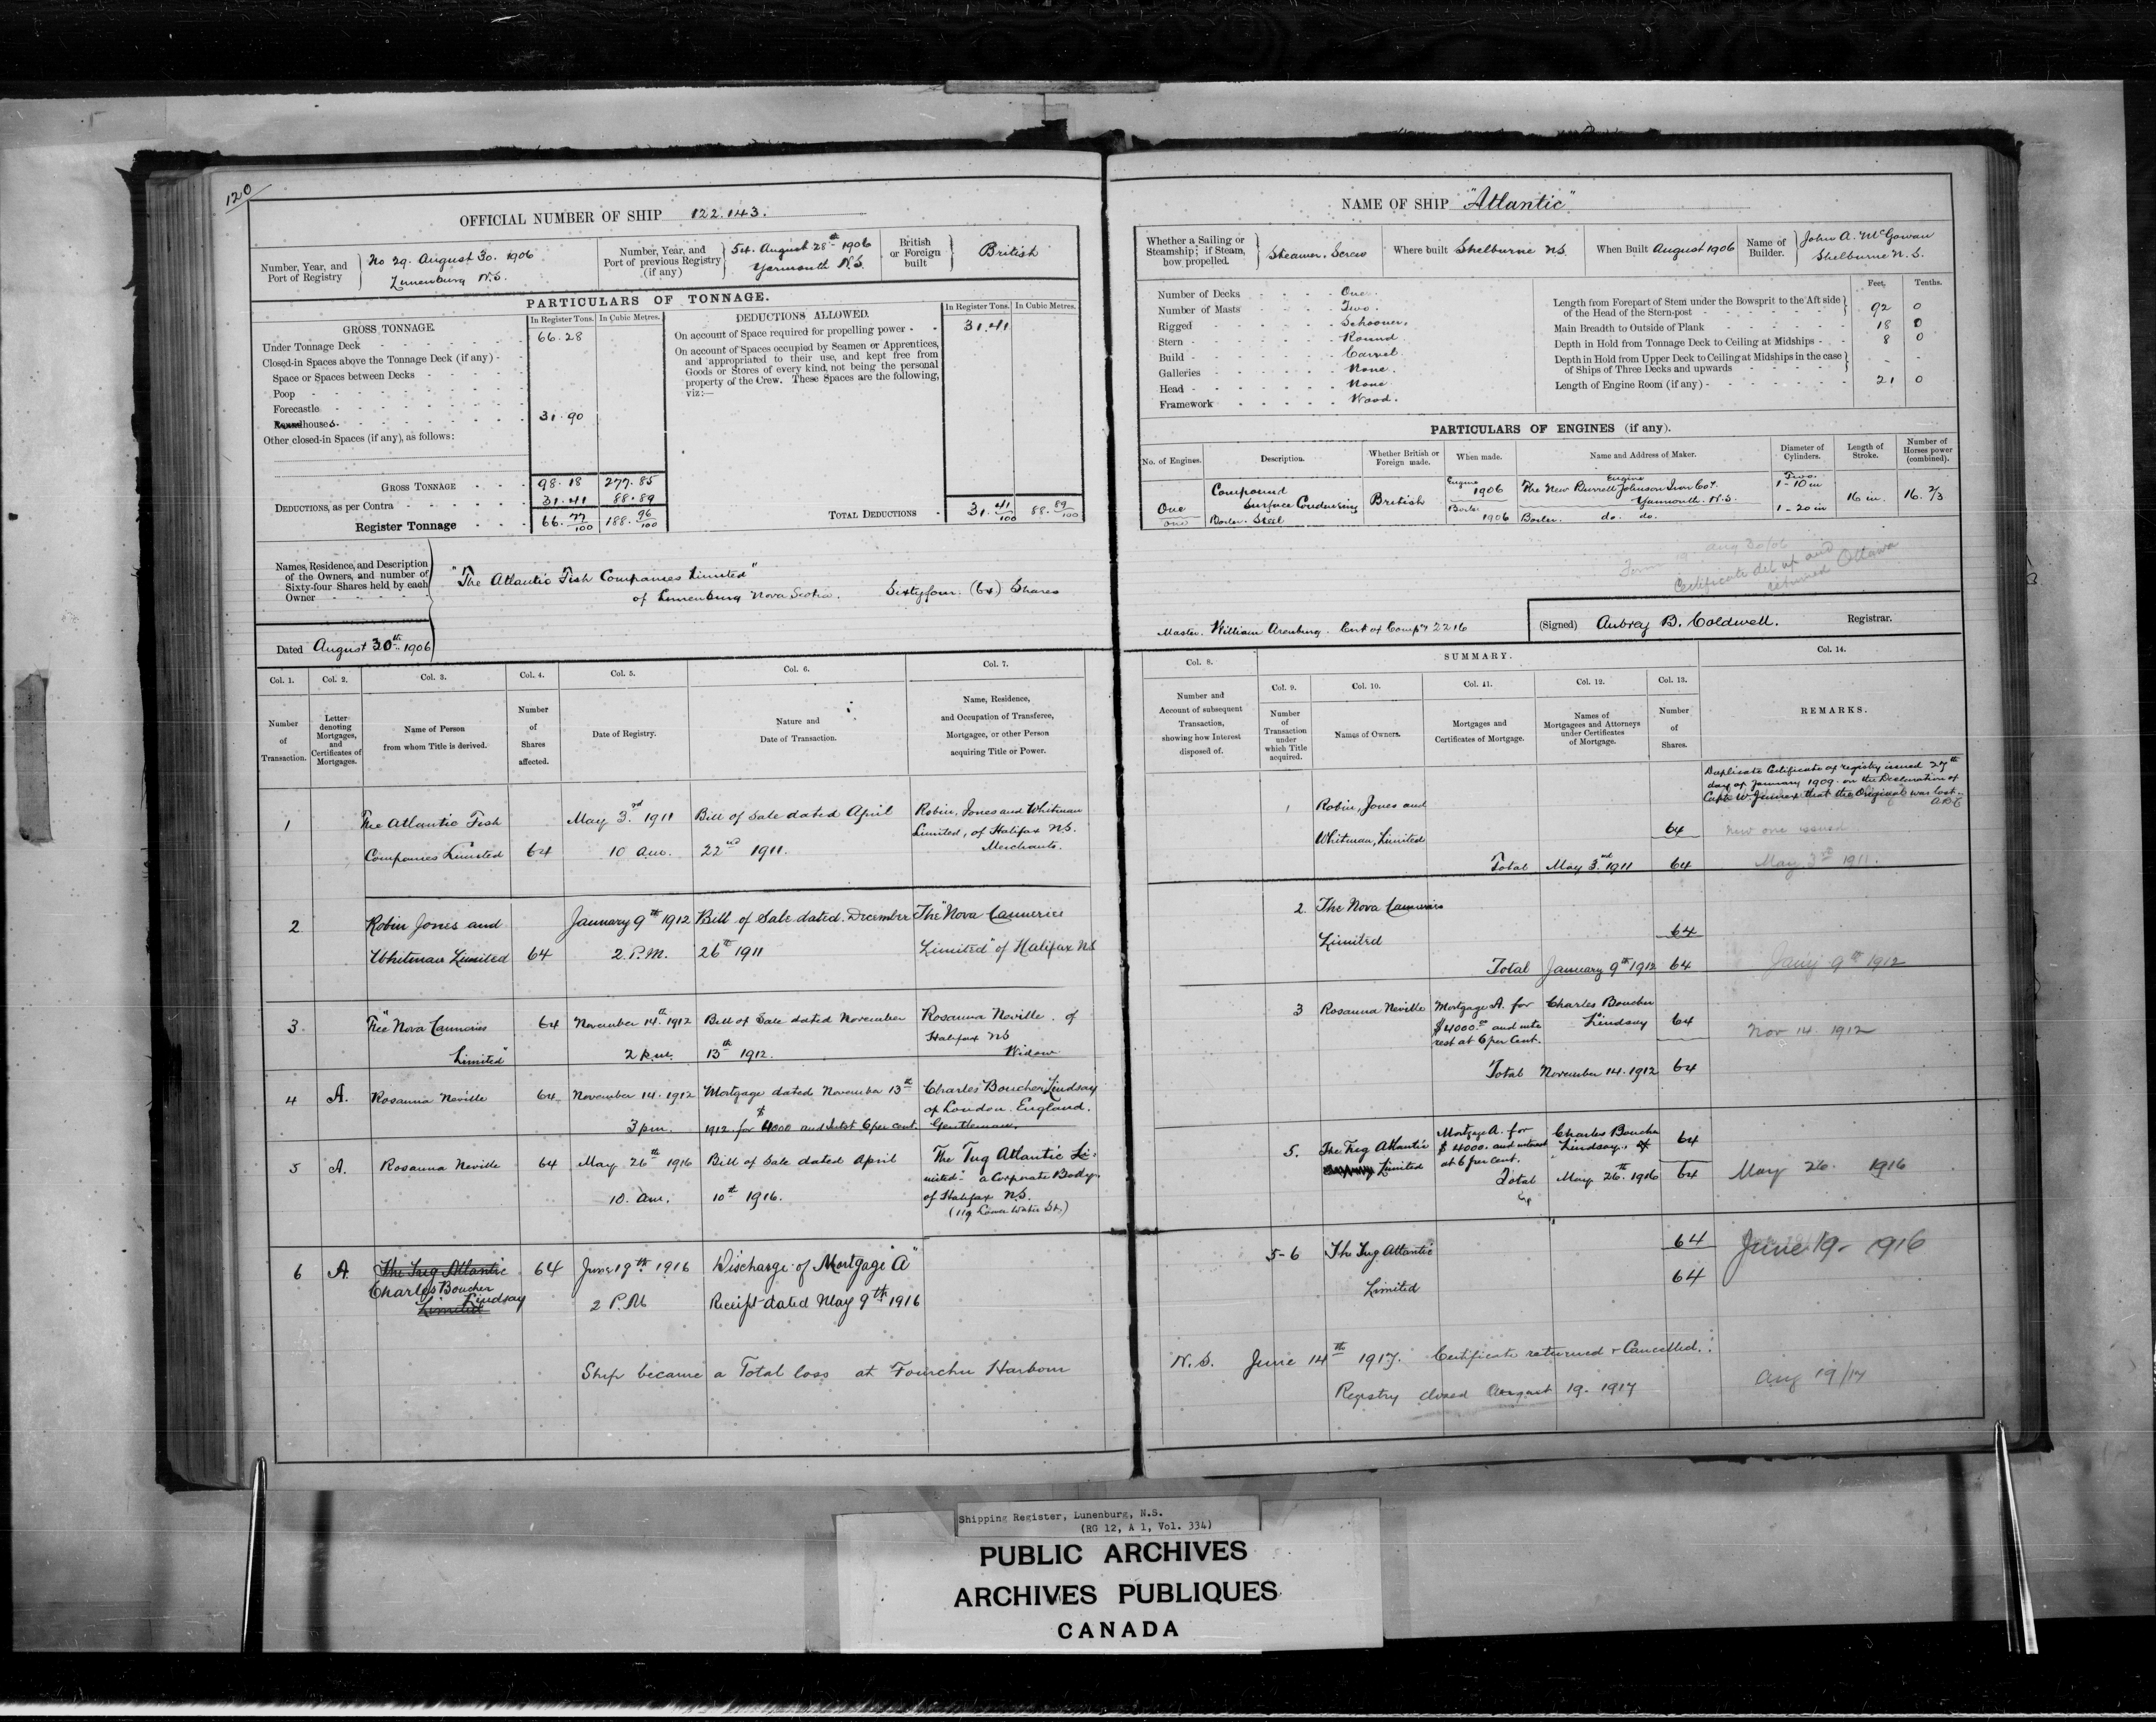 120
OFFICIAL NUMBER OF SHIP 122.143.
Number, Year, and Port of Registry
No 29. August 30. 1906
Lunenburg N.S.
Number, Year, and Port of previous Registry (if any)
54. August 28th 1906
Yarmouth N.S.
British or Foreign built
British
PARTICULARS OF TONNAGE.
GROSS TONNAGE.
In Register Tons.
In Cubic Metres.
Under Tonnage Deck 66.28
Closed-in Spaces above the Tonnage Deck (if any)
Space or Spaces between Decks
Poop
Forecastle
Roundhouses 31.90
Other closed-in Spaces (if any), as follows:
GROSS TONNAGE 98.18 277.85
DEDUCTIONS, as per Contra 31.41 88.89
Register Tonnage 66.77/100 188.96/100
DEDUCTIONS ALLOWED.
In Register Tons.
In Cubic Metres.
On account of Space required for propelling power 31.41
On account of Spaces occupied by Seamen or Apprentices,
and appropriated to their use, and kept free from
Goods or Stores of every kind, not being the personal
property of the Crew. These Spaces are the following,
viz:—
TOTAL DEDUCTIONS 31.41/100 88.89/100
Names, Residence, and Description
of the Owners, and number of
Sixty-four Shares held by each
Owner
"The Atlantic Fish Companies Limited"
of Lunenburg Nova Scotia. Sixtyfour (64) Shares
Dated August 30th 1906
Col. 1.
Number of Transaction.
Col. 2.
Letter denoting Mortgages, and Certificates of Mortgages.
Col. 3.
Name of Person from whom Title is derived.
Col. 4.
Number of Shares affected.
Col. 5.
Date of Registry.
Col. 6.
Nature and Date of Transaction.
Col. 7.
Name, Residence, and Occupation of Transferee, Mortgagee, or other Person acquiring Title or Power.
1
The Atlantic Fish
Companies Limited
64
May 3rd 1911
10 a.m.
Bill of Sale dated April
22nd 1911.
Robin, Jones and Whitman
Limited, of Halifax N.S.
Merchants.
2
Robin Jones and
Whitman Limited
64
January 9th 1912
2. P.M.
Bill of Sale dated December
26th 1911
The "Nova Canneries
Limited" of Halifax N.S
3
The "Nova Canneries
Limited"
64
November 14th 1912
2 p.m.
Bill of Sale dated November
13th 1912.
Rosanna Neville. of
Halifax NS
Widow
4
A.
Rosanna Neville
64
November 14. 1912
3 p.m.
Mortgage dated November 13th
1912. for $4000 and Intst 6 per cent.
Charles Boucher Lindsay
of London. England.
Gentleman.
5
A.
Rosanna Neville
64
May 26th 1916
10. a.m.
Bill of Sale dated April
10th 1916.
The Tug Atlantic Li-
mited" a Corporate Body,
of Halifax N.S.
(119 Lower Water St.)
6
A.
The Tug Atlantic
Charles Boucher
Lindsay
Limited
64
June 19th 1916
2 P.M
Discharge of Mortgage "A"
Receipt dated May 9th 1916
Ship became a Total loss at Fourchu Harbour
NAME OF SHIP "Atlantic"
Whether a Sailing or Steamship; if Steam, how propelled.
Steamer. Screw
Where built Shelburne NS.
When Built August 1906
Name of Builder.
John A. McGowan
Shelburne N.S.
Number of Decks One.
Number of Masts Two.
Rigged Schooner.
Stern Round
Build Carvel
Galleries None.
Head None
Framework Wood.
Feet. Tenths.
Length from Forepart of Stem under the Bowsprit to the Aft side
of the Head of the Stern-post 92 0
Main Breadth to Outside of Plank 18 0
Depth in Hold from Tonnage Deck to Ceiling at Midships 8 0
Depth in Hold from Upper Deck to Ceiling at Midships in the case
of Ships of Three Decks and upwards - -
Length of Engine Room (if any) 21 0
PARTICULARS OF ENGINES (if any).
No. of Engines.
Description.
Whether British or Foreign made.
When made.
Name and Address of Maker.
Diameter of Cylinders.
Length of Stroke.
Number of Horses power (combined).
One
one
Compound
Surface Condensing
Boiler. Steel
British
Engine
1906
Boiler
1906
Engine
The New Burrell Johnson Iron Coy.
Yarmouth. N.S.
Boiler. do. do.
Two.
1-10 in
1-20 in
16 in.
16. 2/3
Aug 30/06
Certificate del up and
returned Ottawa
Master. William Arenburg. Cert of Compy 2216
(Signed) Aubrey B. Coldwell. Registrar.
Col. 8.
Number and Account of subsequent Transaction, showing how Interest disposed of.
SUMMARY.
Col. 9.
Number of Transaction under which Title acquired.
Col. 10.
Names of Owners.
Col. 11.
Mortgages and Certificates of Mortgage.
Col. 12.
Names of Mortgagees and Attorneys under Certificates of Mortgage.
Col. 13.
Number of Shares.
Col. 14.
REMARKS.
Duplicate Certificate of registry issued 27th
day of January 1909. on the Declaration of
Capt W. that the Original was lost.
A.B.C
1
Robin, Jones and
Whitman, Limited
64
new one issued
Total May 3rd 1911 64
May 3rd 1911.
2.
The Nova Canneries
Limited
64
Total January 9th 1912 64
Jany 9th 1912
3
Rosanna Neville
Mortgage A. for
$4000.00 and inte
rest at 6 per Cent.
Charles Boucher
Lindsay
64
Nov 14. 1912
Total November 14. 1912 64
5.
The Tug Atlantic
Limited
Mortgage A. for
$4000. and interest
at 6 per cent.
Charles Boucher
Lindsay.
64
Total May 26th 1916 64
May 26. 1916
5-6
The Tug Atlantic
Limited
64
64
June 19- 1916
N.S. June 14th 1917. Certificate returned & Cancelled.
Registry closed August 19. 1917
Aug 19/17
Shipping Register, Lunenburg, N.S.
(RG 12, A 1, Vol. 334)
PUBLIC ARCHIVES
ARCHIVES PUBLIQUES
CANADA